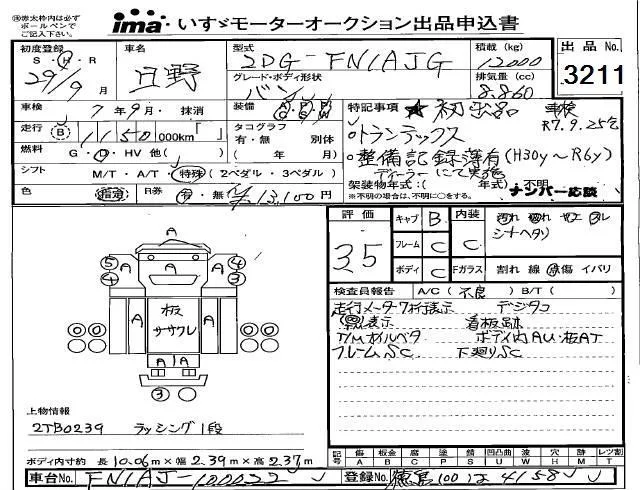 ima いすゞモーターオークション出品申込書
㊟赤太枠内は必ずボールペンでご記入下さい。
出品No. 3211
初度登録 S・H・R 29年9月
車名 日野
型式 2DG-FN1AJG
積載(kg) 12000
グレード・ボディ形状 バン
排気量(cc) 8.860
車検 7年9月・抹消
装備 A/C P/S P/W
走行 (B) 1150 000km「 」
タコグラフ 有・無 別体 ( 年)
燃料 G・D・HV 他( )
シフト M/T・A/T・特殊(2ペダル・3ペダル)
色 (指定) R券 有・無 ¥13,100円
特記事項 ★初出品 車検 R7.9.25迄
・トランテックス
・整備記録簿有(H30y~R6y)
ディーラーにて実施
架装物年式:( 年式)・不明
※不明の場合は、不明に○をする。
ナンバー応談
評価 35
キャブ B 内装 C
フレーム C
ボディ C Fガラス 割れ 線 点傷 イバリ
シートヘタリ
検査員報告 A/C( 不良 ) B/T( )
走行メーター7桁表示 デジタコ
表示 看板跡
T/Mオイルベタ ボディ内AU・板AT
フレームSC 下廻りSC
板ササクレ
A A A A A A 1A
5 4 4 3 3
上物情報
2TB0239 ラッシング1段
ボディ内寸約 長10.06m×幅2.39m×高2.37m
記号 傷A 板金B 腐C 塗P 錆S 凹凸曲U 波W 穴H 跡M レツ割T
車台No. FN1AJ-100022
登録No. 徳島100は4158